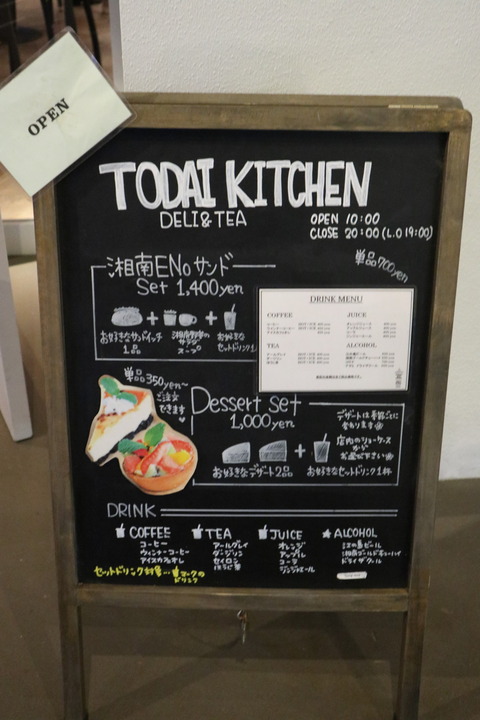 OPEN
TODAI KITCHEN
DELI&TEA
OPEN 10:00
CLOSE 20:00 (L.O 19:00)
湘南ENoサンド
Set 1,400yen
単品700yen
お好きなサンドイッチ
1品
湘南野菜の
サラダ
スープ
お好きな
セットドリンク1
DRINK MENU
COFFEE
JUICE
TEA
ALCOHOL
単品350yen~
ご注文
できます
Dessert set
1,000yen
デザートは季節ごとに
変わります
店内のショーケース
から
お選び下さい
お好きなデザート2品
お好きなセットドリンク1杯
DRINK
COFFEE
コーヒー
ウィンナーコーヒー
アイスカフェオレ
TEA
アールグレイ
ダージリン
セイロン
ほうじ茶
JUICE
オレンジ
アップル
コーラ
ジンジャエール
★ALCOHOL
江の島ビール
湘南ゴールドチューハイ
ドライゼロ
セットドリンク対象…マークの
ドリンク